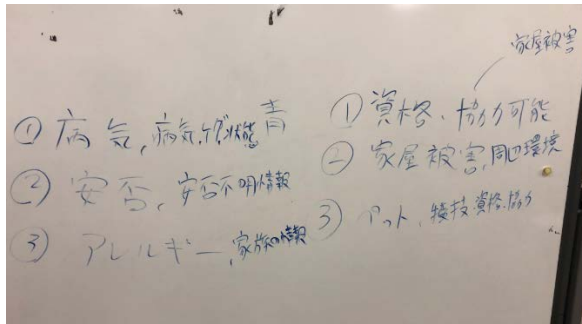 家屋被害
① 病気、病気、ケガ、状態 青
② 安否、安否不明情報
③ アレルギー、家族の情報
① 資格、協力可能
② 家屋被害、周辺環境
③ 特技、資格、協力